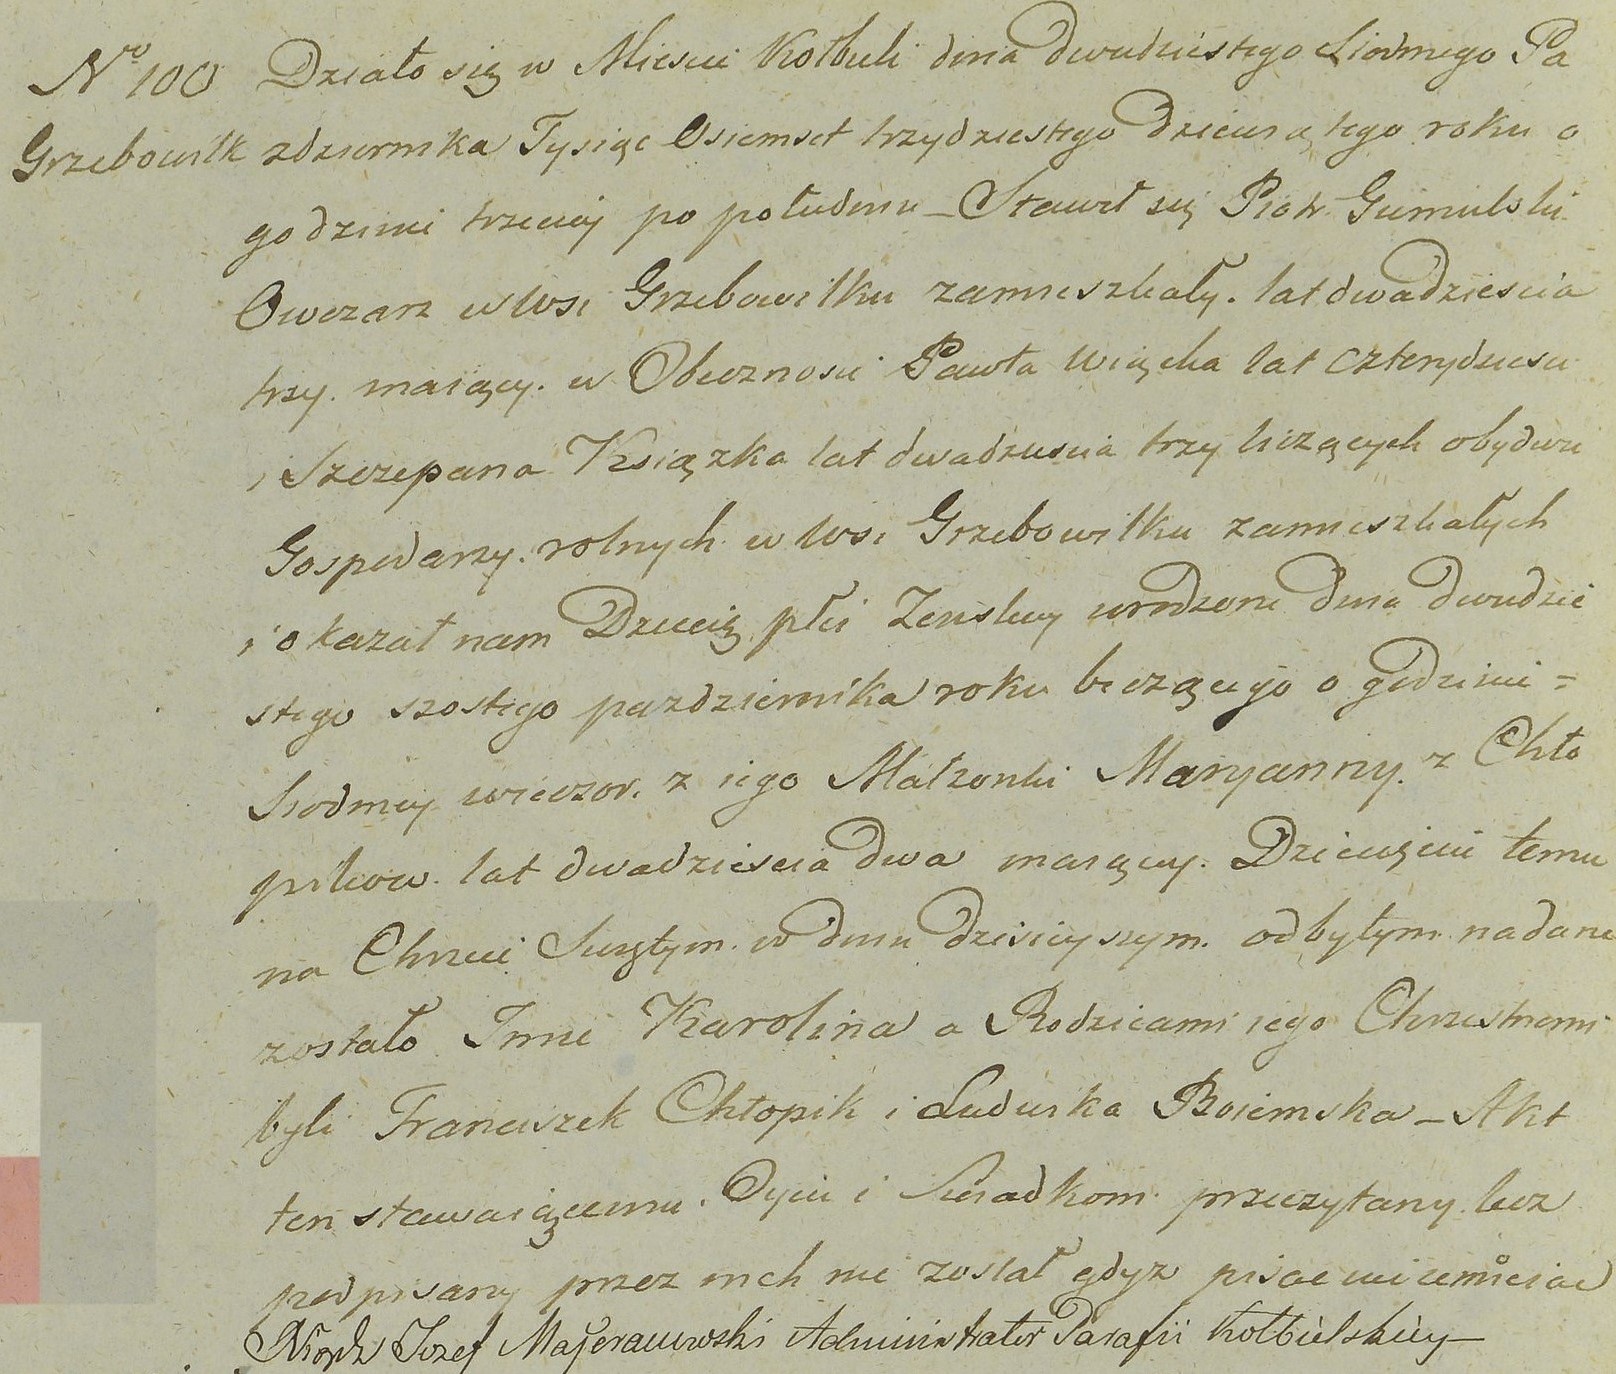 Nro 100 Działo się w Miescie Kołbieli dnia dwudziestego Siodmego Pa
Grzebowilk zdziernika Tysiąc Osiemset trzydziestego dziewiątego roku o
godzinie trzeciey po południu – Stawił się Piotr Gumulski
Owczarz w Wsi Grzebowilku zamieszkały. lat dwadziescia
trzy. maiący. w Obecznosci Pawła Wiącka lat czterydziesci
i Szczepana Książka lat dwadziescia trzy liczących obydwu
Gospodarzy. rolnych w Wsi Grzebowilku zamieszkałych
i okazał nam Dziecię płci Zenskiey urodzone dnia dwudzie
stego szostego pazdziernika roku biezącego o godzinie =
Siodmey wieczor. z iego Małzonki Maryanny. z Chło
pikow. lat dwadziescia dwa maiącey. Dziecięciu temu
na Chrzcie Swiętym. w dniu dzisieyszym. odbytym nadane
zostało Imie Karolina a Rodzicami iego Chrzestnemi
byli Franciszek Chłopik i Ludwika Boiemska – Akt
ten stawaiącemu. Oycu i Swiadkom przeczytany lecz
podpisany przez nich nie został gdyz pisac nie umieią
Xiądz Jozef Majeranowski Administrator Parafii Kołbielskiey –